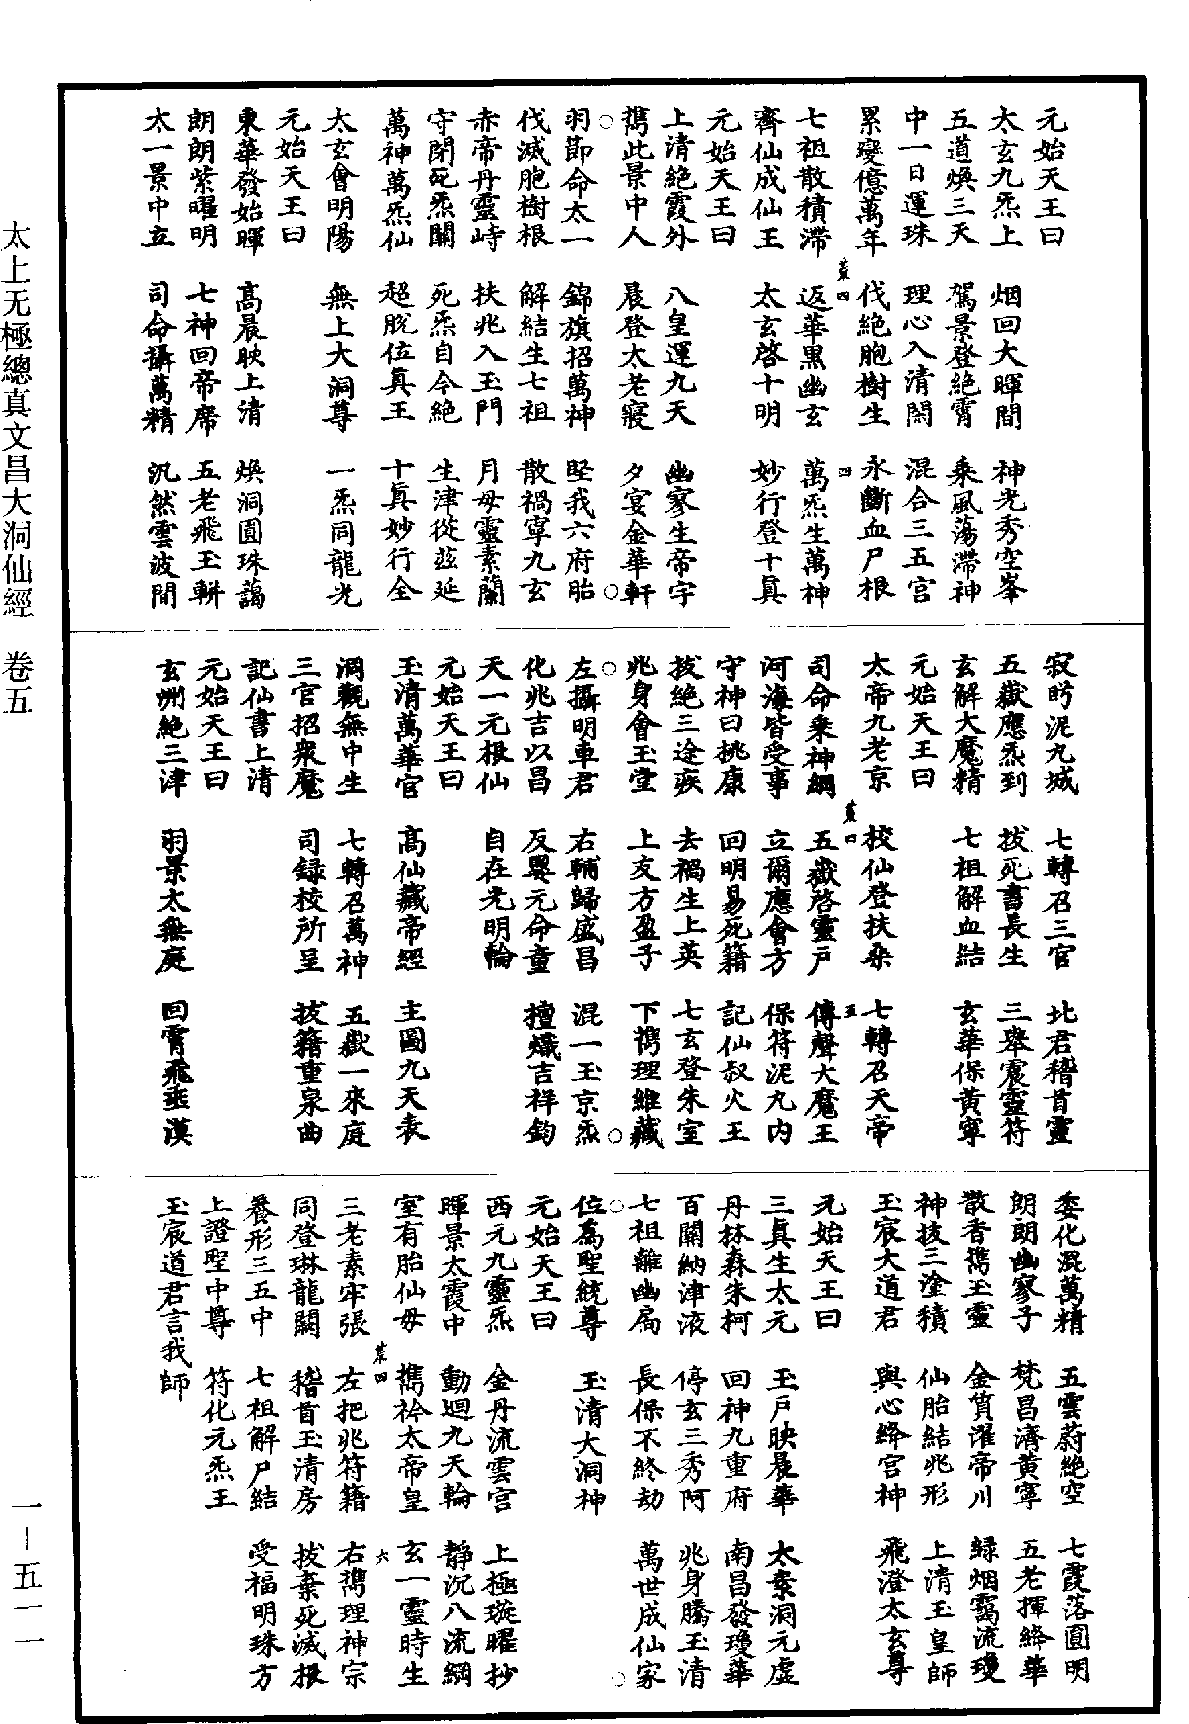 元始天王曰
太玄九炁上　烟回大暉間　神光秀空峯
五道煥三天　駕景登絕霄　乘風蕩滯神
中一日運珠　理心入清閟　混合三五宮
累變億萬年　伐絕胞樹生　永斷血尸根
七祖散積滯　返華黑幽玄　萬炁生萬神
齊仙成仙王　太玄啓十明　妙行登十真
元始天王曰
上清絕霞外　八皇運九天　幽寥生帝宇
携此景中人　晨登太老寢　夕宴金華軒
羽節命太一　錦旗招萬神　堅我六府胎
伐滅胞樹根　解結生七祖　散禍寧九玄
赤帝丹靈峙　扶兆入玉門　月母靈素蘭
守閉死炁關　死炁自今絕　生津從茲延
萬神萬炁仙　超脫位真王　十真妙行全
太玄會明陽　無上大洞尊　一炁同龍光
元始天王曰
東華發始暉　高晨映上清　煥洞圓珠藹
朗朗紫曜明　七神回帝席　五老飛玉軿
太一景中立　司命攝萬精　沉然雲波間
寂眄泥丸城　七轉召三官　北君稽首靈
五嶽應炁到　拔死書長生　三舉震靈符
玄解大魔精　七祖解血結　玄華保黃寧
元始天王曰
太帝九老京　校仙登扶桑　七轉召天帝
司命乘神綱　五嶽啓靈戶　傳聲大魔王
河海皆受事　立爾應會方　保符泥丸內
守神曰桃康　回明易死籍　記仙叔火王
拔絕三途疾　去禍生上英　七玄登朱室
兆身會玉堂　上友方盈子　下携理維藏
左攝明車君　右輔歸盛昌　混一玉京炁
化兆吉以昌　反嬰元命童　擅熾吉祥鈞
天一元根仙　自在光明輪
元始天王曰
玉清萬華官　高仙藏帝經　主圖九天表
洞觀無中生　七轉召萬神　五嶽一來庭
三官招衆魔　司録校所呈　拔籍重泉曲
記仙書上清
元始天王曰
玄洲絕三津　羽景太無庭　回霄飛垂漢
委化混萬精　五雲蔚絕空　七霞落圓明
朗朗幽寥子　梵昌濟黃寧　五老揮絳華
散香携玉靈　金質濯帝川　緑烟靄流瓊
神拔三塗積　仙胎結兆形　上清玉皇師
玉宸大道君　與心絳宮神　飛澄太玄尊
元始天王曰
三真生太元　玉戶映晨華　太素洞元虛
丹林森朱柯　回神九重府　南昌發瓊華
百關納津液　停玄三秀阿　兆身騰玉清
七祖離幽扃　長保不終劫　萬世成仙家
位爲聖統尊　玉清大洞神
元始天王曰
西元九靈炁　金丹流雲宮　上極璇曜抄
暉景太霞中　動迴九天輪　靜沉八流綱
室有胎仙母　携衿太帝皇　玄一靈時生
三老素牢張　左把兆符籍　右携理神宗
同登琳龍闕　稽首玉清房　拔棄死滅根
養形三五中　七祖解尸結　受福明珠方
上證聖中尊　符化元炁王
玉宸道君言我師
菜四　四
菜四　五
菜四　六
太上无極總真文昌大洞仙經　卷五
一—五一一